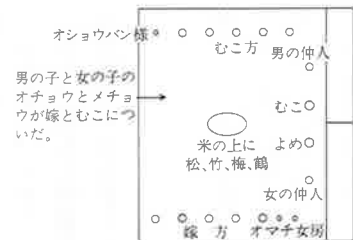 オショウバン様
むこ方
男の仲人
男の子と女の子の
オチョウとメチョ
ウが嫁とむこにつ
いだ。
むこ
よめ
米の上に
松、竹、梅、鶴
女の仲人
嫁方
オマチ女房